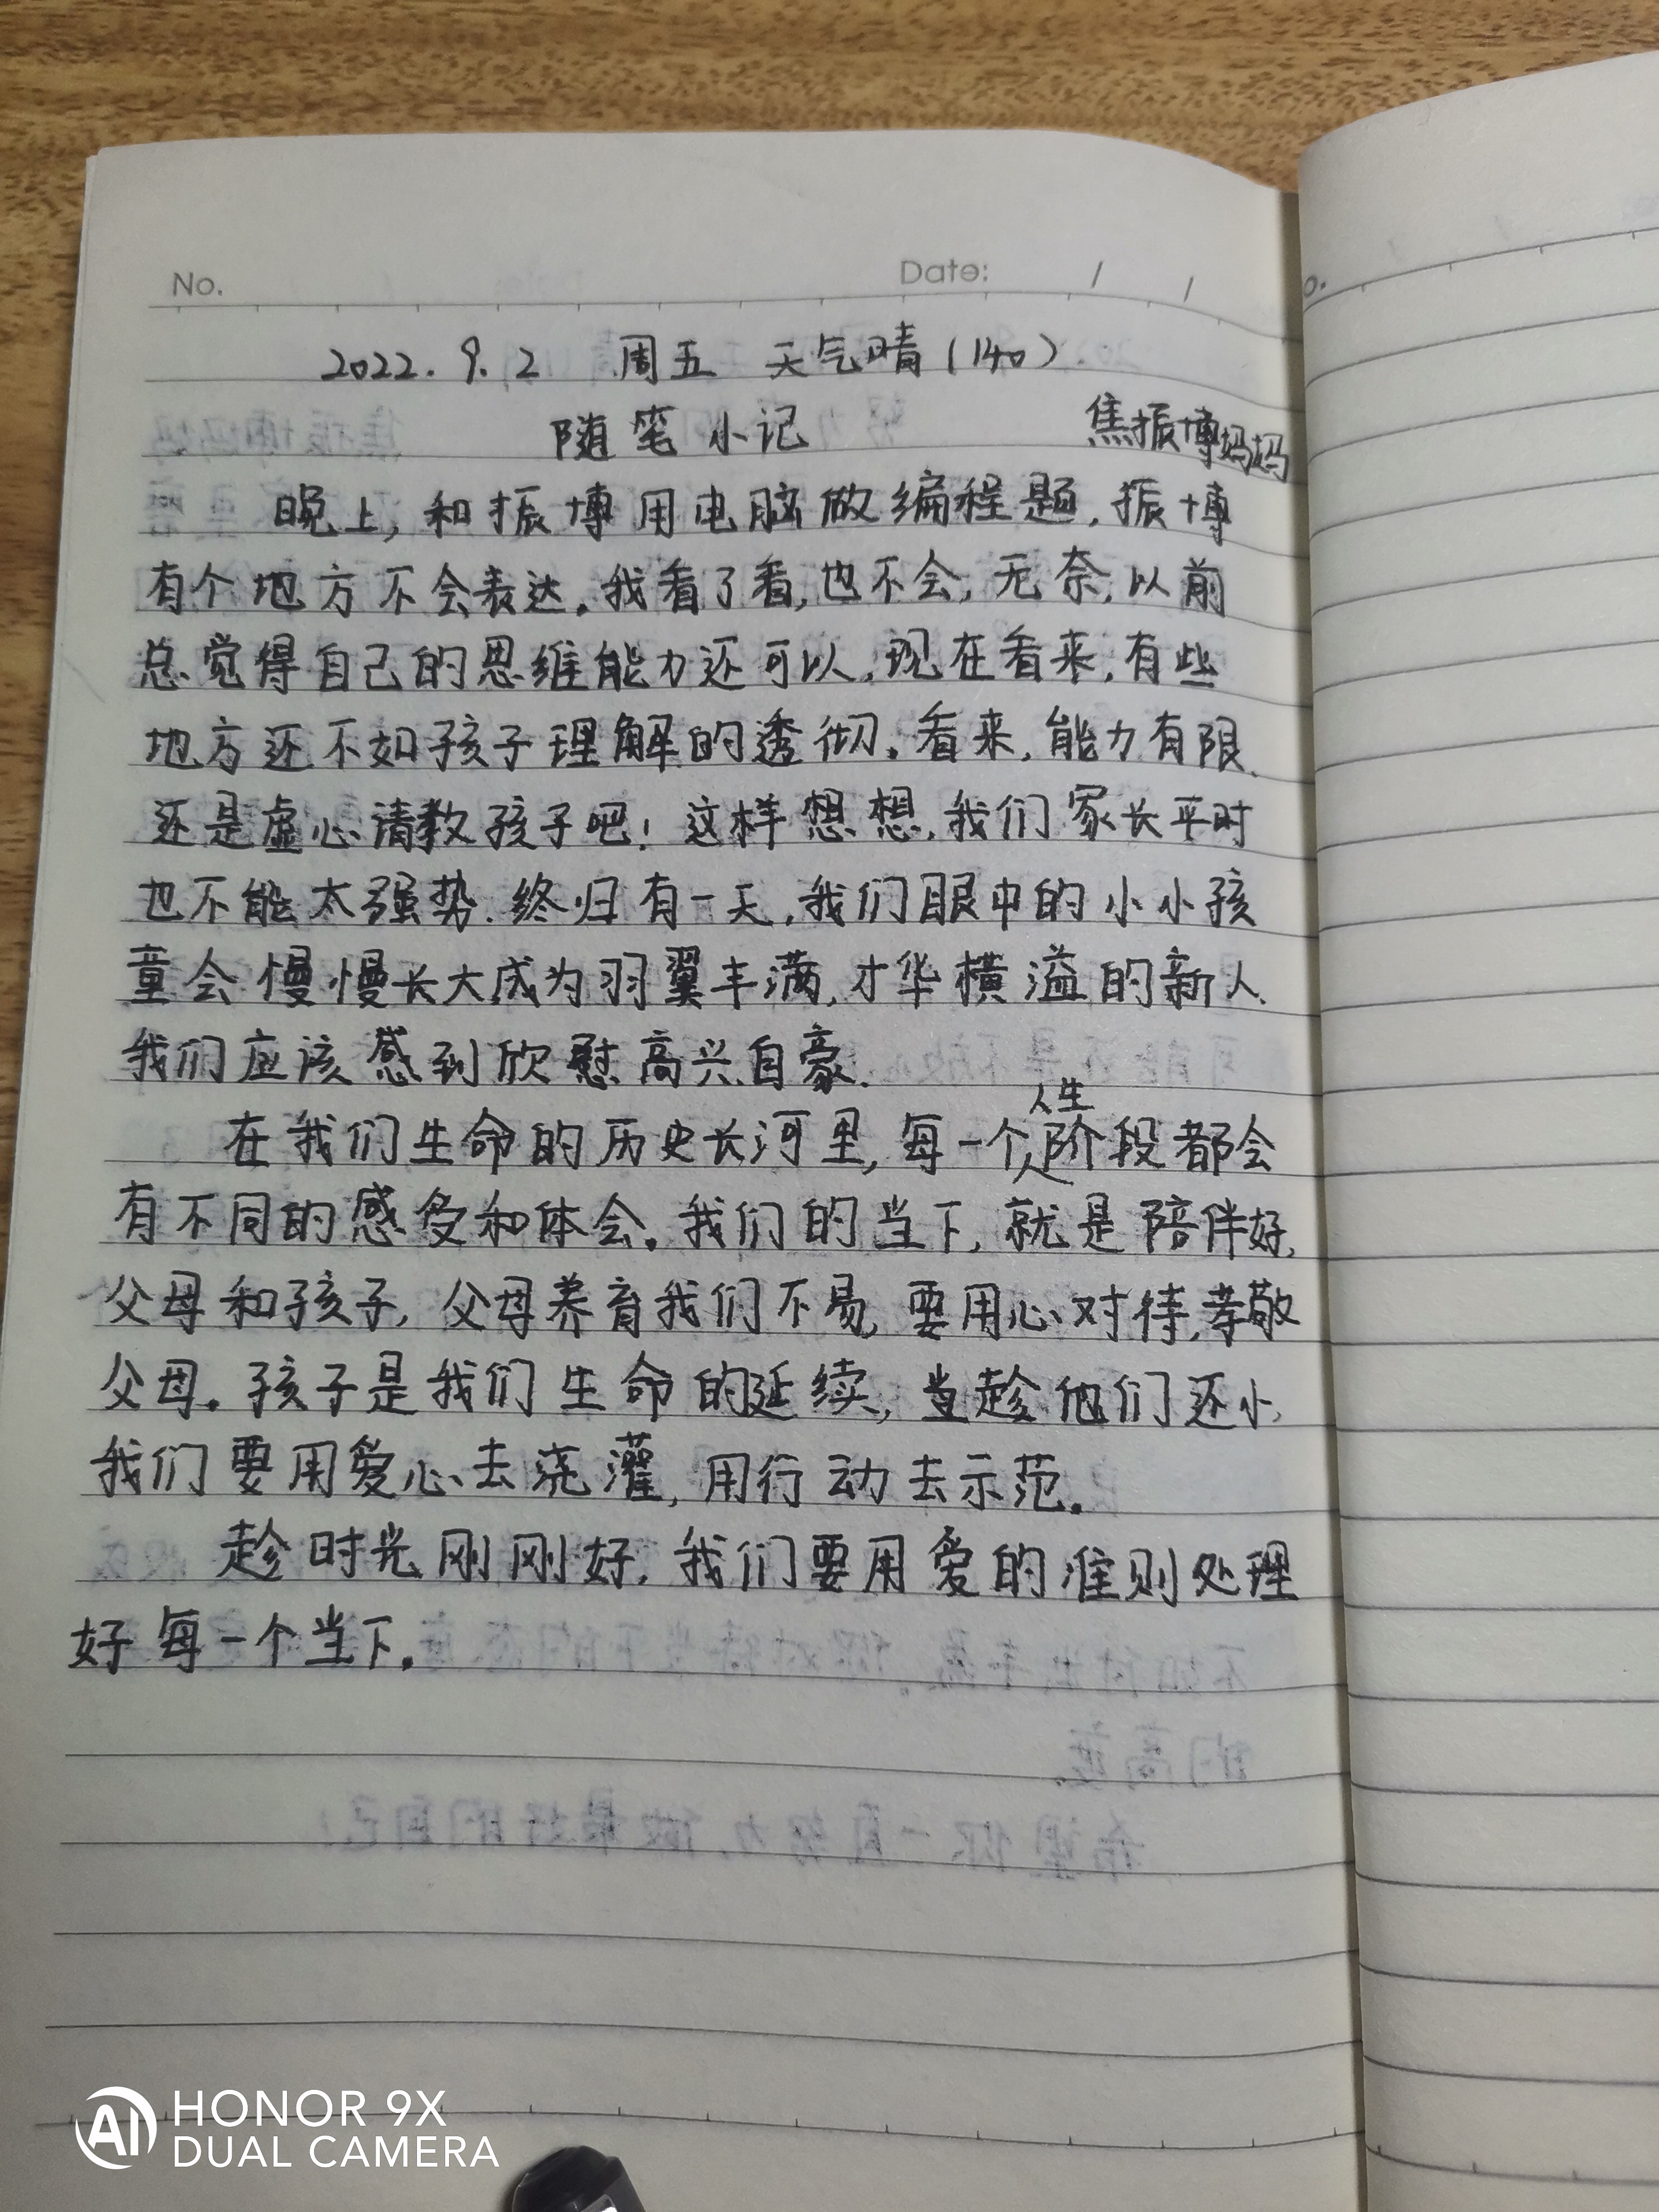 No.
Date: / /
2022.9.2 周五 天气晴(140)
随笔小记 焦振博妈妈
晚上,和振博用电脑做编程题,振博
有个地方不会表达。我看了看,也不会,无奈,以前
总觉得自己的思维能力还可以,现在看来,有些
地方还不如孩子理解的透彻。看来,能力有限,
还是虚心请教孩子吧!这样想想,我们家长平时
也不能太强势,终归有一天,我们眼中的小小孩
童会慢慢长大成为羽翼丰满,才华横溢的新人,
我们应该感到欣慰高兴自豪.
在我们生命的历史长河里,每一个人生阶段都会
有不同的感受和体会。我们的当下,就是陪伴好,
父母和孩子,父母养育我们不易,要用心对待,孝敬
父母。孩子是我们生命的延续,当趁他们还小,
我们要用爱心去浇灌,用行动去示范。
趁时光刚刚好,我们要用爱的准则处理
好每一个当下。
AI HONOR 9X
DUAL CAMERA